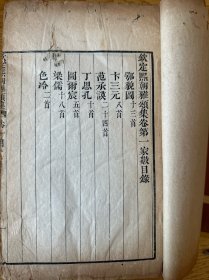 欽定熙朝雅頌集卷第一家數目錄
鄂貌圖十三首
卞三元八首
范承謨二十四首
丁思孔十首
圖爾宸五首
梁儒十八首
色冷二首